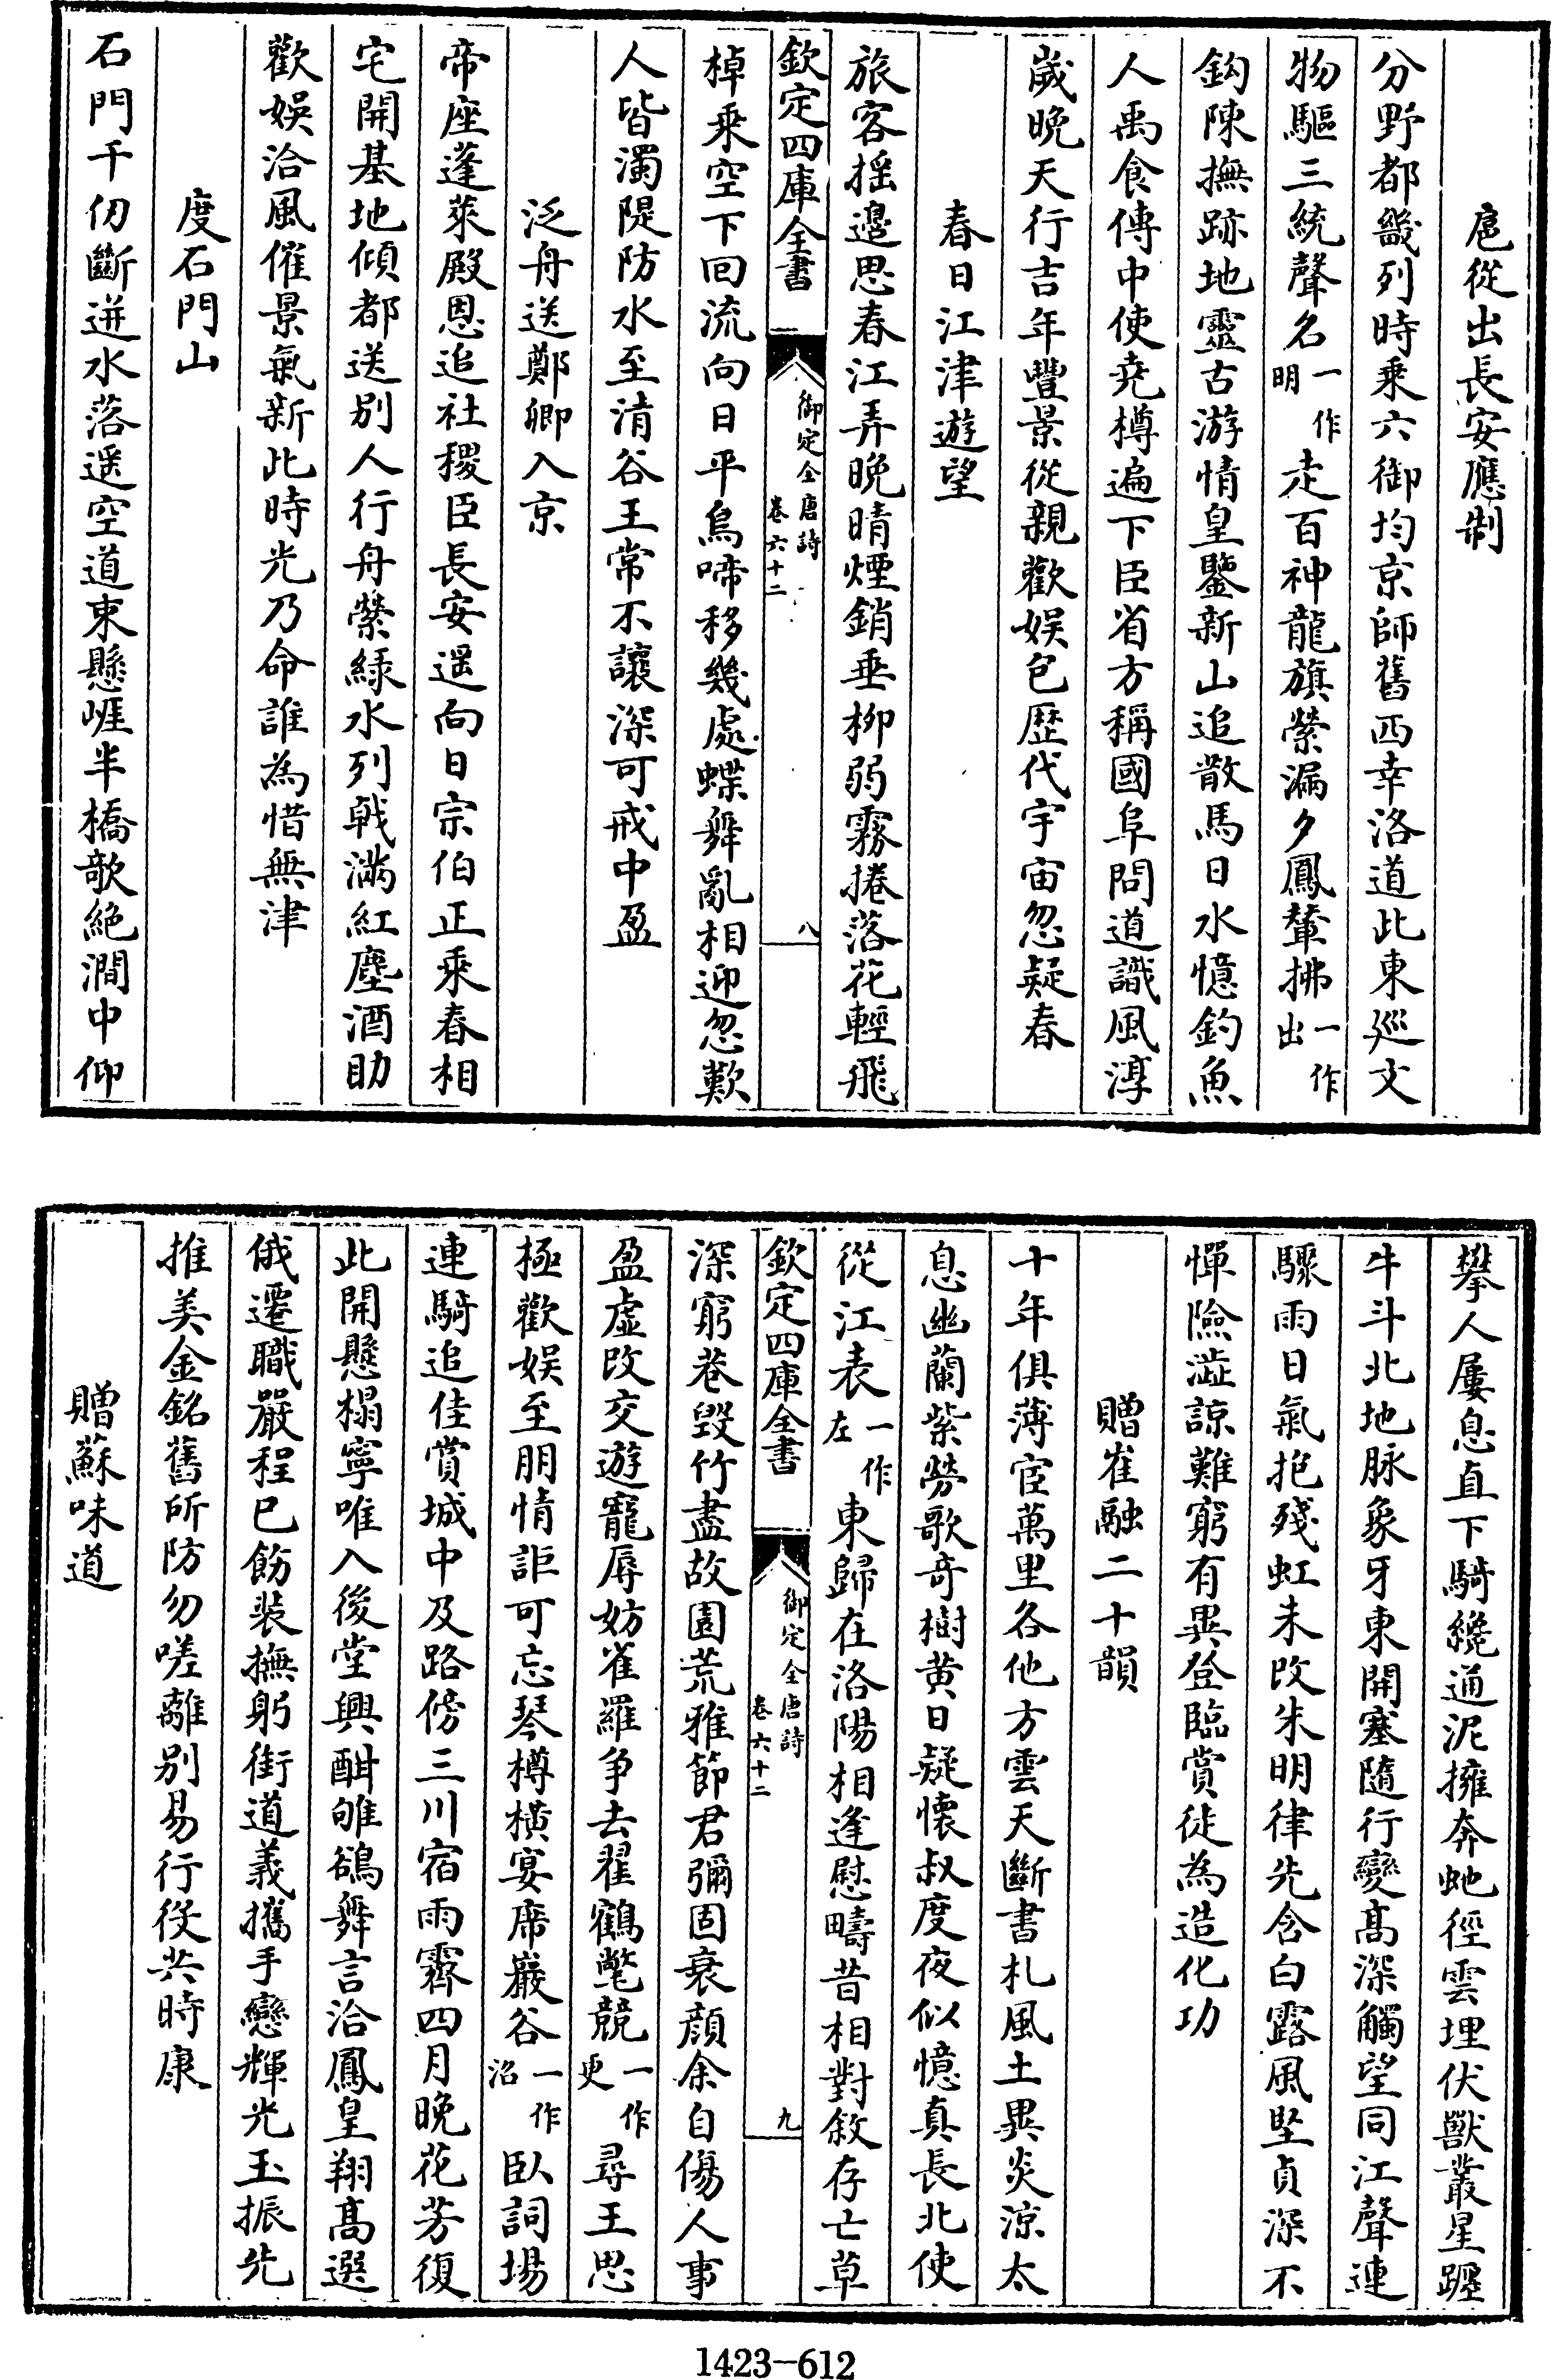 扈從出長安應制
分野都畿列時乘六御均京師舊西幸洛道此東廵文
物驅三統聲名一作明走百神龍旗縈漏夕鳳輦拂一作出
鈎陳撫跡地靈古游情皇鑒新山追散馬日水憶釣魚
人禹食傳中使堯樽遍下臣省方稱國阜問道識風淳
歲晚天行吉年豐景從親歡娱包歴代宇宙忽疑春
春日江津遊望
旅客揺邊思春江弄晚晴煙銷垂栁弱霧捲落花輕飛
欽定四庫全書
御定全唐詩
卷六十二
八
棹乘空下回流向日平鳥啼移幾處蝶舞亂相迎忽歎
人皆濁隄防水至清谷王常不讓深可戒中盈
泛舟送鄭卿入京
帝座蓬萊殿恩追社稷臣長安遥向日宗伯正乘春相
宅開基地傾都送别人行舟縈緑水列戟滿紅塵酒助
歡娛洽風催景氣新此時光乃命誰為惜無津
度石門山
石門千仞斷迸水落遥空道束懸崖半橋欹絶澗中仰
攀人屢息直下騎纔通泥擁奔虵徑雲埋伏獸叢星躔
牛斗北地脉象牙東開塞隨行變髙深觸望同江聲連
驟雨日氣抱殘虹未改朱明律先含白露風堅貞深不
憚險澁諒難窮有異登臨賞徒為造化功
贈崔融二十韻
十年俱薄宦萬里各他方雲天斷書札風土異炎凉太
息幽蘭紫勞歌奇樹黄日疑懷叔度夜似憶真長北使
從江表一作左東歸在洛陽相逢慰疇昔相對敘存亡草
欽定四庫全書
御定全唐詩
卷六十二
九
深窮巷毁竹盡故園荒雅節君彌固衰顔余自傷人事
盈虛改交遊寵辱妨雀羅争去翟鶴氅競一作更尋王思
極歡娱至朋情詎可忘琴樽横宴席巖谷一作沼臥詞場
連騎追佳賞城中及路傍三川宿雨霽四月晚花芳復
此開懸榻寧唯入後堂興酣鴝鵒舞言洽鳳皇翔髙選
俄遷職嚴程已飭装撫躬銜道義攜手戀輝光玉振先
推美金銘舊所防勿嗟離别易行役共時康
贈蘇味道
1423—612